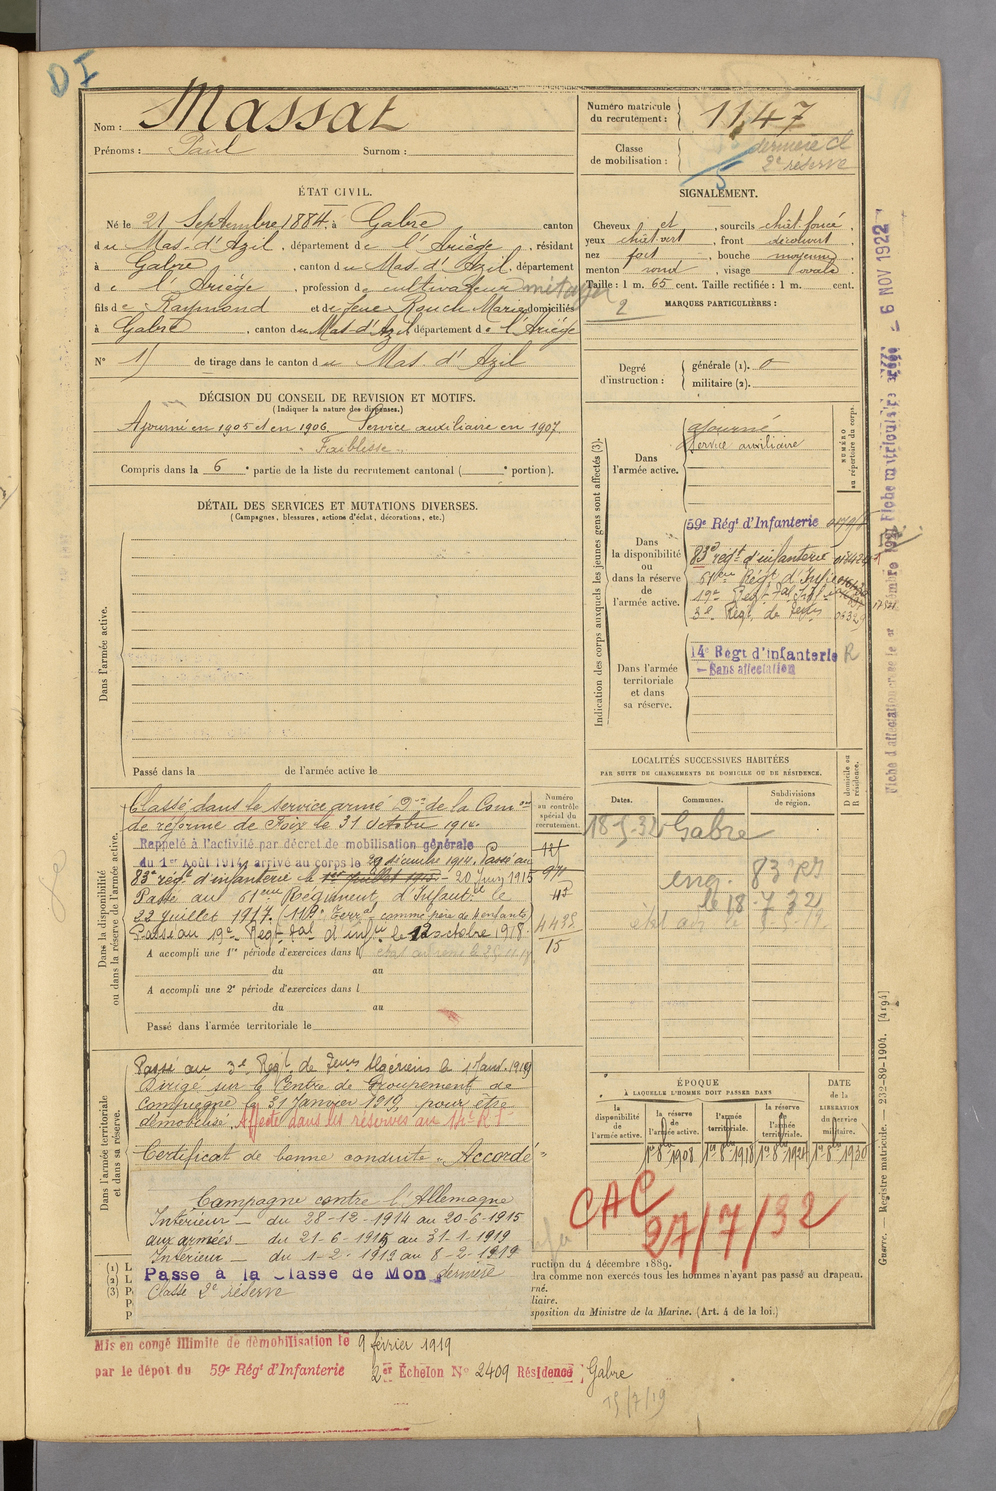 DI
Nom : Massat
Prénoms : Paul Surnom :
Numéro matricule du recrutement : 1147
Classe de mobilisation : dernière cl
2e réserve
5
ÉTAT CIVIL.
Né le 21 Septembre 1884, à Gabre canton
du Mas-d'Azil, département de l'Ariège, résidant
à Gabre, canton du Mas-d'Azil, département
de l'Ariège, profession de cultivateur métayer
fils de Raymond et de feue Rouch Marie domiciliés
à Gabre, canton du Mas-d'Azil, département de l'Ariège
N° 15 de tirage dans le canton du Mas-d'Azil
SIGNALEMENT.
Cheveux et, sourcils chât-foncé,
yeux chât-vert, front découvert,
nez fort, bouche moyenne,
menton rond, visage ovale.
Taille : 1 m. 65 cent. Taille rectifiée : 1 m. cent.
2
MARQUES PARTICULIÈRES :
Degré d'instruction : générale (1). 0
militaire (2).
DÉCISION DU CONSEIL DE REVISION ET MOTIFS.
(Indiquer la nature des dispenses.)
Ajourné en 1905 et en 1906. Service auxiliaire en 1907.
Faiblesse
Compris dans la 6e partie de la liste du recrutement cantonal ( e portion).
DÉTAIL DES SERVICES ET MUTATIONS DIVERSES.
(Campagnes, blessures, actions d'éclat, décorations, etc.)
Dans l'armée active.
Passé dans la de l'armée active le
Indication des corps auxquels les jeunes gens sont affectés (3).
NUMÉRO au répertoire du corps.
Dans l'armée active.
ajourné
Service auxiliaire
Dans la disponibilité ou dans la réserve de l'armée active.
59e Régt d'Infanterie
83e régt d'infanterie
61eme Régt d'Infie
19e Regt
3e Régt de
Dans l'armée territoriale et dans sa réserve.
14e Régt d'Infanterie R
- Sans affectation
Fiche matriculaire
6 NOV 1922
LOCALITÉS SUCCESSIVES HABITÉES
PAR SUITE DE CHANGEMENTS DE DOMICILE OU DE RÉSIDENCE.
Dates. Communes. Subdivisions de région. D domicile ou R résidence.
18-5-32 Gabre
enq. 83 RI
le 18-7-32
Dans la disponibilité ou dans la réserve de l'armée active.
Classé dans le service armé Don de la Comon
de réforme de Foix le 31 Octobre 1914.
Rappelé à l'activité par décret de mobilisation générale
du 1er Août 1914 arrivé au corps le 29 décembre 1914. Passé au
83e régt d'infanterie le 1er Juillet 1915 - 20 Juin 1915
Passé au 61eme Régiment d'Infantie le
22 Juillet 1917. (119e Terral comme père de enfants)
Passé au 19e Regt d'infie le 12 octobre 1918.
A accompli une 1re période d'exercices dans l
du au
A accompli une 2e période d'exercices dans l
du au
Passé dans l'armée territoriale le
Numéro au contrôle spécial du recrutement.
15
Dans l'armée territoriale et dans sa réserve.
Passé au 3e Regt de Algériens le 1919
Dirigé sur le Centre de Groupement de
Compiègne le 31 Janvier 1919 pour être
démobilisé. Affecté dans les réserves au 14e R I
Certificat de bonne conduite "Accordé"
Campagne contre l'Allemagne
Intérieur - du 28-12-1914 au 20-6-1915
aux armées - du 21-6-1915 au 31-1-1919
Intérieur - du 1-2-1919 au 8-2-1919
Passé à la Classe de Mon dernière
Classe 2e réserve
ÉPOQUE
À LAQUELLE L'HOMME DOIT PASSER DANS
la disponibilité de l'armée active.
la réserve de l'armée active.
l'armée territoriale.
la réserve de l'armée territoriale.
DATE de la LIBÉRATION du service militaire.
1er 8bre 1908 1er 8bre 1918 1er 8bre 1924 1er 8bre 1930
CAC
27/7/32
(1) L
(2) L
(3) P
P
P
ruction du 4 décembre 1889.
dra comme non exercés tous les hommes n'ayant pas passé au drapeau.
rné.
liaire.
sposition du Ministre de la Marine. (Art. 4 de la loi.)
Guerre. — Registre matricule. — 232-89-1904. [4194]
Mis en congé illimité de démobilisation le 9 février 1919
par le dépôt du 59e Régt d'Infanterie 2er Échelon N° 2409 Résidence : Gabre
15/7/19